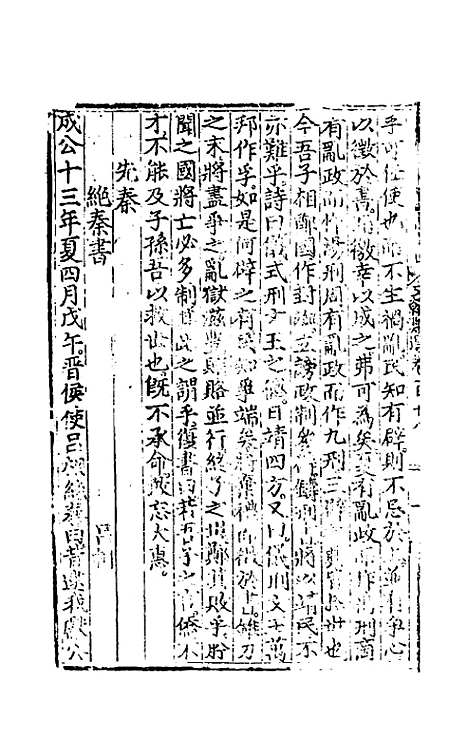 乎可任使也而不生禍亂民知有辟則不忌於上並有爭心
以徵於書而徼幸以成之弗可為矣夏有亂政而作禹刑商
有亂政而作湯刑周有亂政而作九刑三辟之興皆叔世也
今吾子相鄭國作封洫立謗政制參辟鑄刑書將以靖民不
亦難乎詩曰儀式刑文王之德日靖四方又曰儀刑文王萬
邦作孚如是何辟之有民知爭端矣將棄禮而徵於書錐刀
之末將盡爭之亂獄滋豐賄賂並行終子之世鄭其敗乎肸
聞之國將亡必多制其此之謂乎復書曰若吾子之言僑不
才不能及子孫吾以救世也既不承命敢忘大惠
先秦
絕秦書
呂相
成公十三年夏四月戊午晋侯使呂相絕秦曰昔逮我獻公